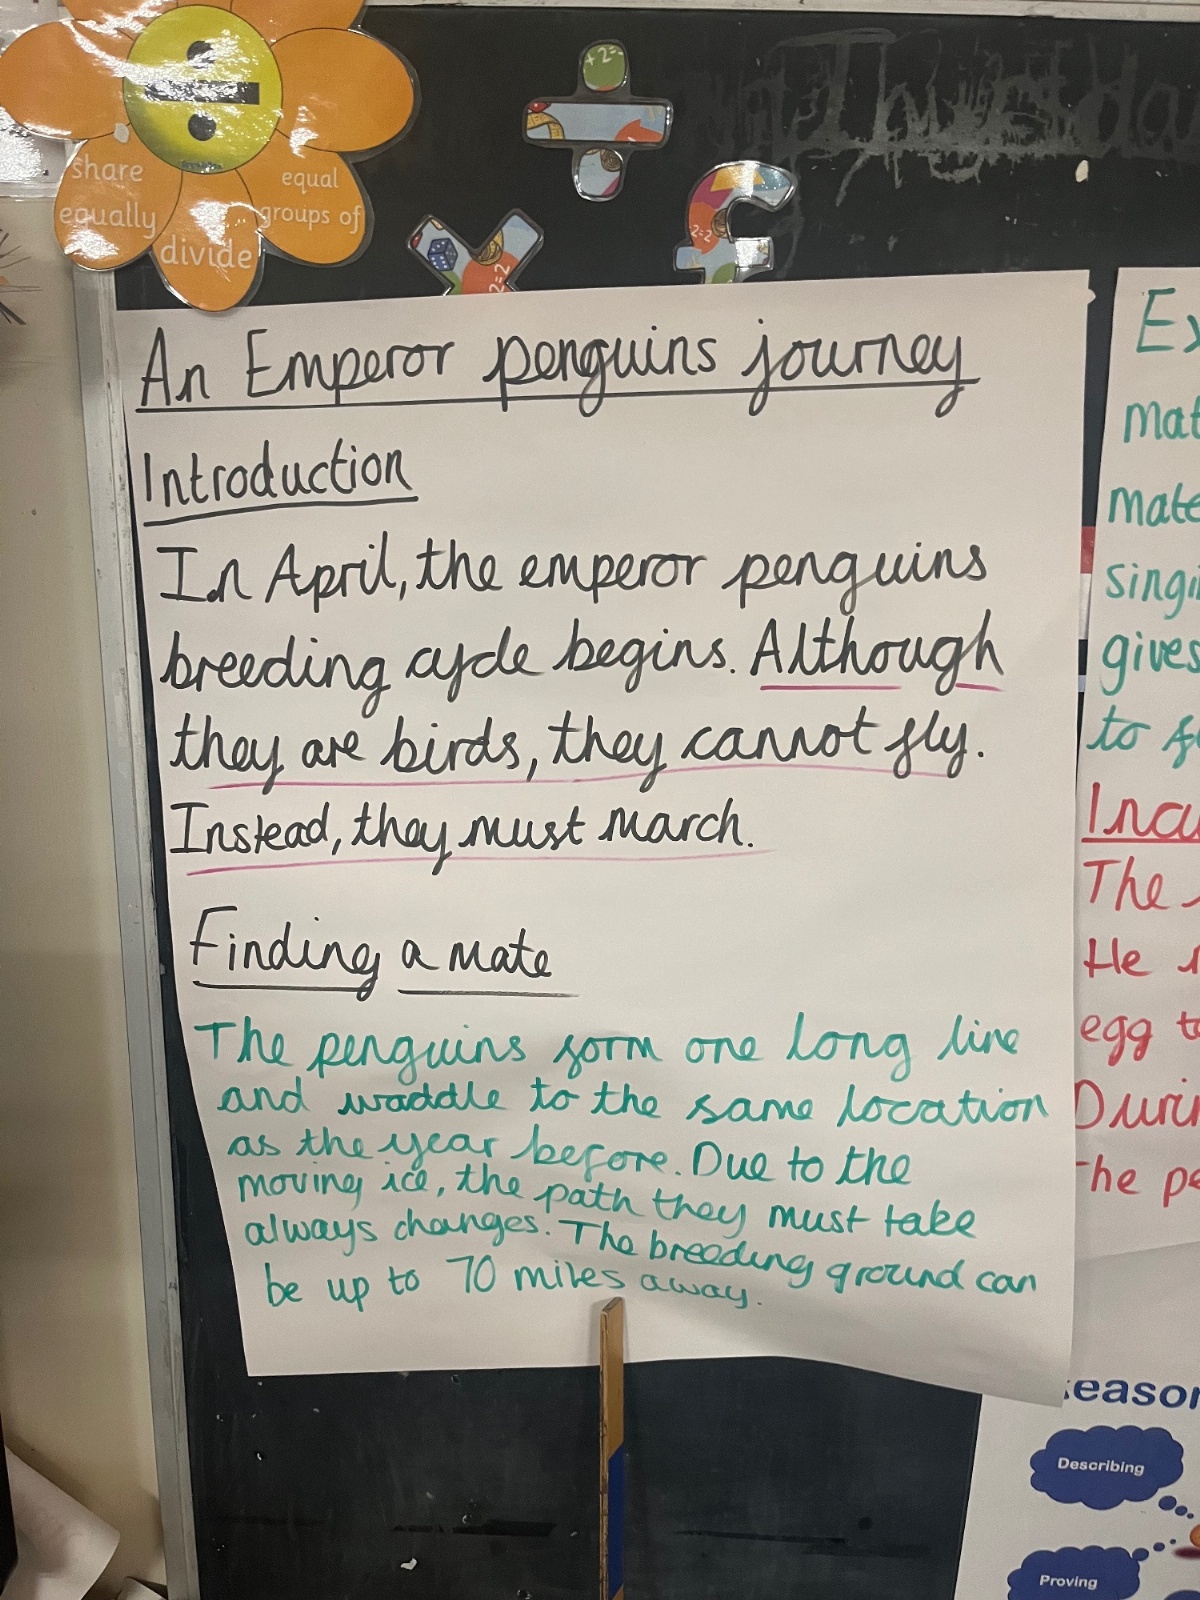 share
equally
divide
equal
groups of
An Emperor penguins journey
Introduction
In April, the emperor penguins
breeding cycle begins. Although
they are birds, they cannot fly.
Instead, they must march.
Finding a mate
The penguins form one long line
and waddle to the same location
as the year before. Due to the
moving ice, the path they must take
always changes. The breeding ground can
be up to 70 miles away.
mate
gives
to
The
He
egg
Describing
Proving